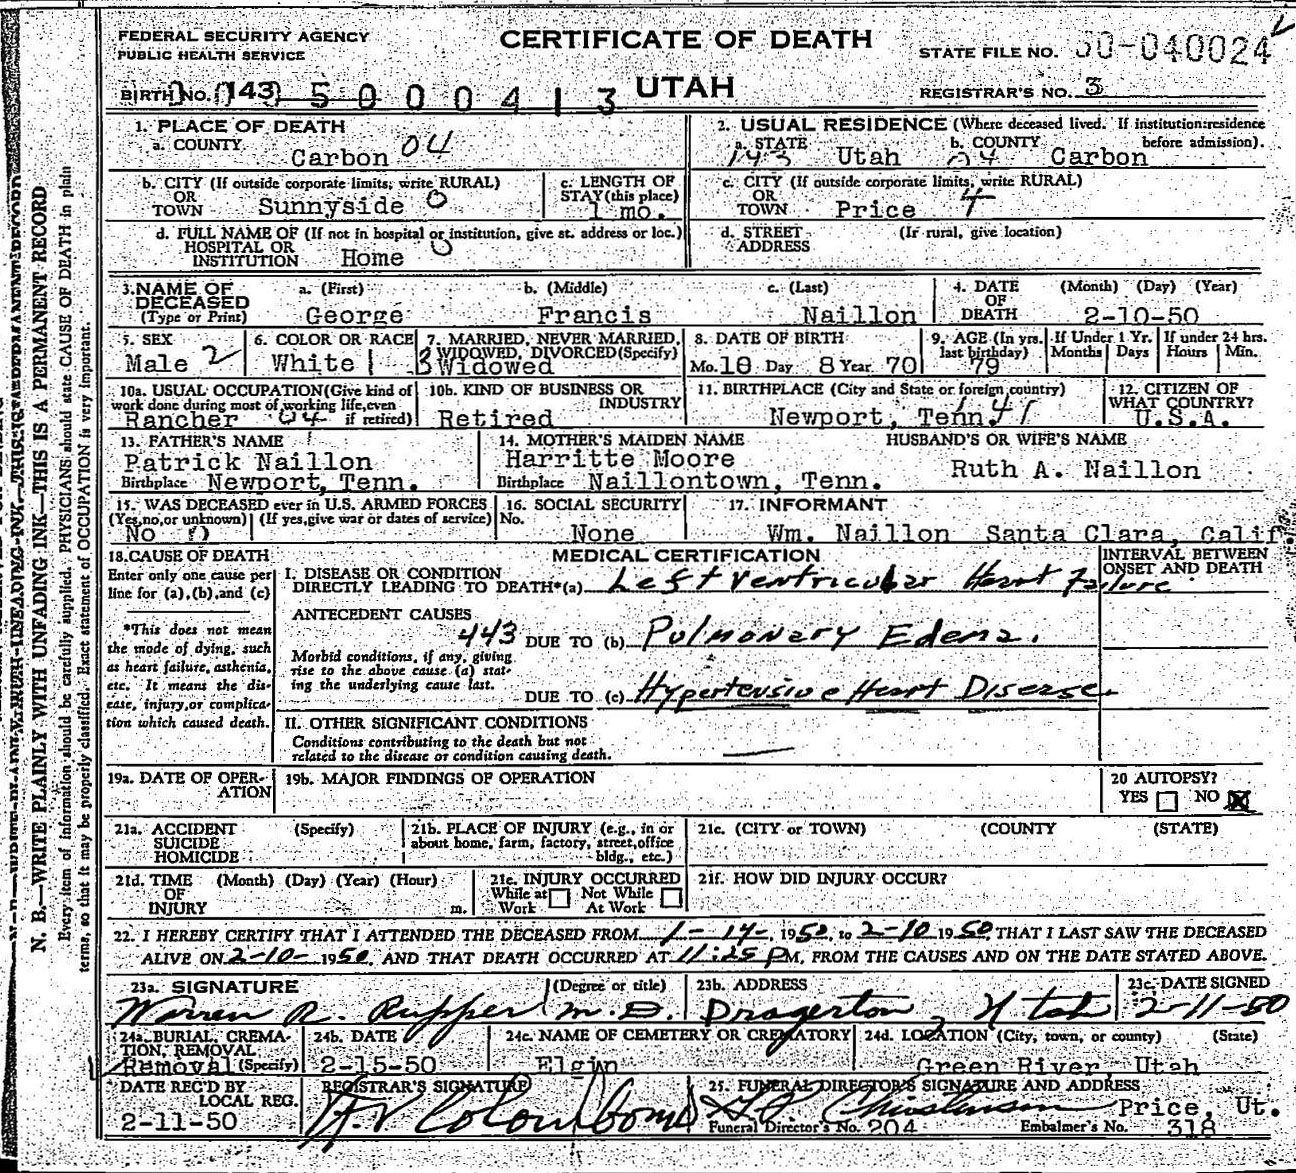 FEDERAL SECURITY AGENCY
PUBLIC HEALTH SERVICE
CERTIFICATE OF DEATH
UTAH
STATE FILE NO. 50-040024
BIRTH NO. 143 5 0 0 0 4 1 3
REGISTRAR'S NO. 3
1. PLACE OF DEATH
a. COUNTY Carbon 04
2. USUAL RESIDENCE (Where deceased lived. If institution: residence before admission).
a. STATE 143 Utah b. COUNTY 04 Carbon
b. CITY (If outside corporate limits, write RURAL) OR TOWN Sunnyside 0
c. LENGTH OF STAY (this place) 1 mo.
c. CITY (If outside corporate limits, write RURAL) OR TOWN Price 4
d. FULL NAME OF (If not in hospital or institution, give st. address or loc.) HOSPITAL OR INSTITUTION Home 0
d. STREET ADDRESS (If rural, give location)
3. NAME OF DECEASED (Type or Print) a. (First) George b. (Middle) Francis c. (Last) Naillon
4. DATE OF DEATH (Month) (Day) (Year) 2-10-50
5. SEX Male 2
6. COLOR OR RACE White 1
7. MARRIED, NEVER MARRIED, WIDOWED, DIVORCED (Specify) 3 Widowed
8. DATE OF BIRTH Mo. 10 Day 8 Year 70
9. AGE (In yrs. last birthday) 79
If Under 1 Yr. Months Days
If under 24 hrs. Hours Min.
10a. USUAL OCCUPATION (Give kind of work done during most of working life, even if retired) Rancher 04
10b. KIND OF BUSINESS OR INDUSTRY Retired
11. BIRTHPLACE (City and State or foreign country) Newport, Tenn. 41
12. CITIZEN OF WHAT COUNTRY? U.S.A.
13. FATHER'S NAME Patrick Naillon
Birthplace Newport, Tenn.
14. MOTHER'S MAIDEN NAME Harritte Moore
Birthplace Naillontown, Tenn.
HUSBAND'S OR WIFE'S NAME Ruth A. Naillon
15. WAS DECEASED ever in U.S. ARMED FORCES (Yes, no, or unknown) (If yes, give war or dates of service) No 0
16. SOCIAL SECURITY No. None
17. INFORMANT Wm. Naillon Santa Clara, Calif.
18. CAUSE OF DEATH
Enter only one cause per line for (a), (b), and (c)
*This does not mean the mode of dying, such as heart failure, asthenia, etc. It means the disease, injury, or complication which caused death.
MEDICAL CERTIFICATION
INTERVAL BETWEEN ONSET AND DEATH
I. DISEASE OR CONDITION DIRECTLY LEADING TO DEATH* (a) Left Ventricular Heart Failure
ANTECEDENT CAUSES
443 DUE TO (b) Pulmonary Edema.
Morbid conditions, if any, giving rise to the above cause (a) stating the underlying cause last.
DUE TO (c) Hypertensive Heart Disease
II. OTHER SIGNIFICANT CONDITIONS
Conditions contributing to the death but not related to the disease or condition causing death.
19a. DATE OF OPERATION
19b. MAJOR FINDINGS OF OPERATION
20 AUTOPSY? YES NO X
21a. ACCIDENT SUICIDE HOMICIDE (Specify)
21b. PLACE OF INJURY (e.g., in or about home, farm, factory, street, office bldg., etc.)
21c. (CITY or TOWN) (COUNTY) (STATE)
21d. TIME OF INJURY (Month) (Day) (Year) (Hour) m.
21e. INJURY OCCURRED While at Work Not While At Work
21f. HOW DID INJURY OCCUR?
22. I HEREBY CERTIFY THAT I ATTENDED THE DECEASED FROM 1-14- 1950, to 2-10 1950, THAT I LAST SAW THE DECEASED
ALIVE ON 2-10- 1950, AND THAT DEATH OCCURRED AT 11:25 PM, FROM THE CAUSES AND ON THE DATE STATED ABOVE.
23a. SIGNATURE (Degree or title) Warren R. Rupper M.D.
23b. ADDRESS Dragerton, Utah
23c. DATE SIGNED 2-11-50
24a. BURIAL, CREMATION, REMOVAL (Specify) Removal
24b. DATE 2-15-50
24c. NAME OF CEMETERY OR CREMATORY Elgin
24d. LOCATION (City, town, or county) (State) Green River, Utah
DATE REC'D BY LOCAL REG. 2-11-50
REGISTRAR'S SIGNATURE
25. FUNERAL DIRECTOR'S SIGNATURE AND ADDRESS Christensen Price, Ut.
Funeral Director's No. 204 Embalmer's No. 318
N. B.—WRITE PLAINLY WITH UNFADING INK—THIS IS A PERMANENT RECORD
Every item of information should be carefully supplied. PHYSICIANS should state CAUSE OF DEATH in plain
terms, so that it may be properly classified. Exact statement of OCCUPATION is very important.